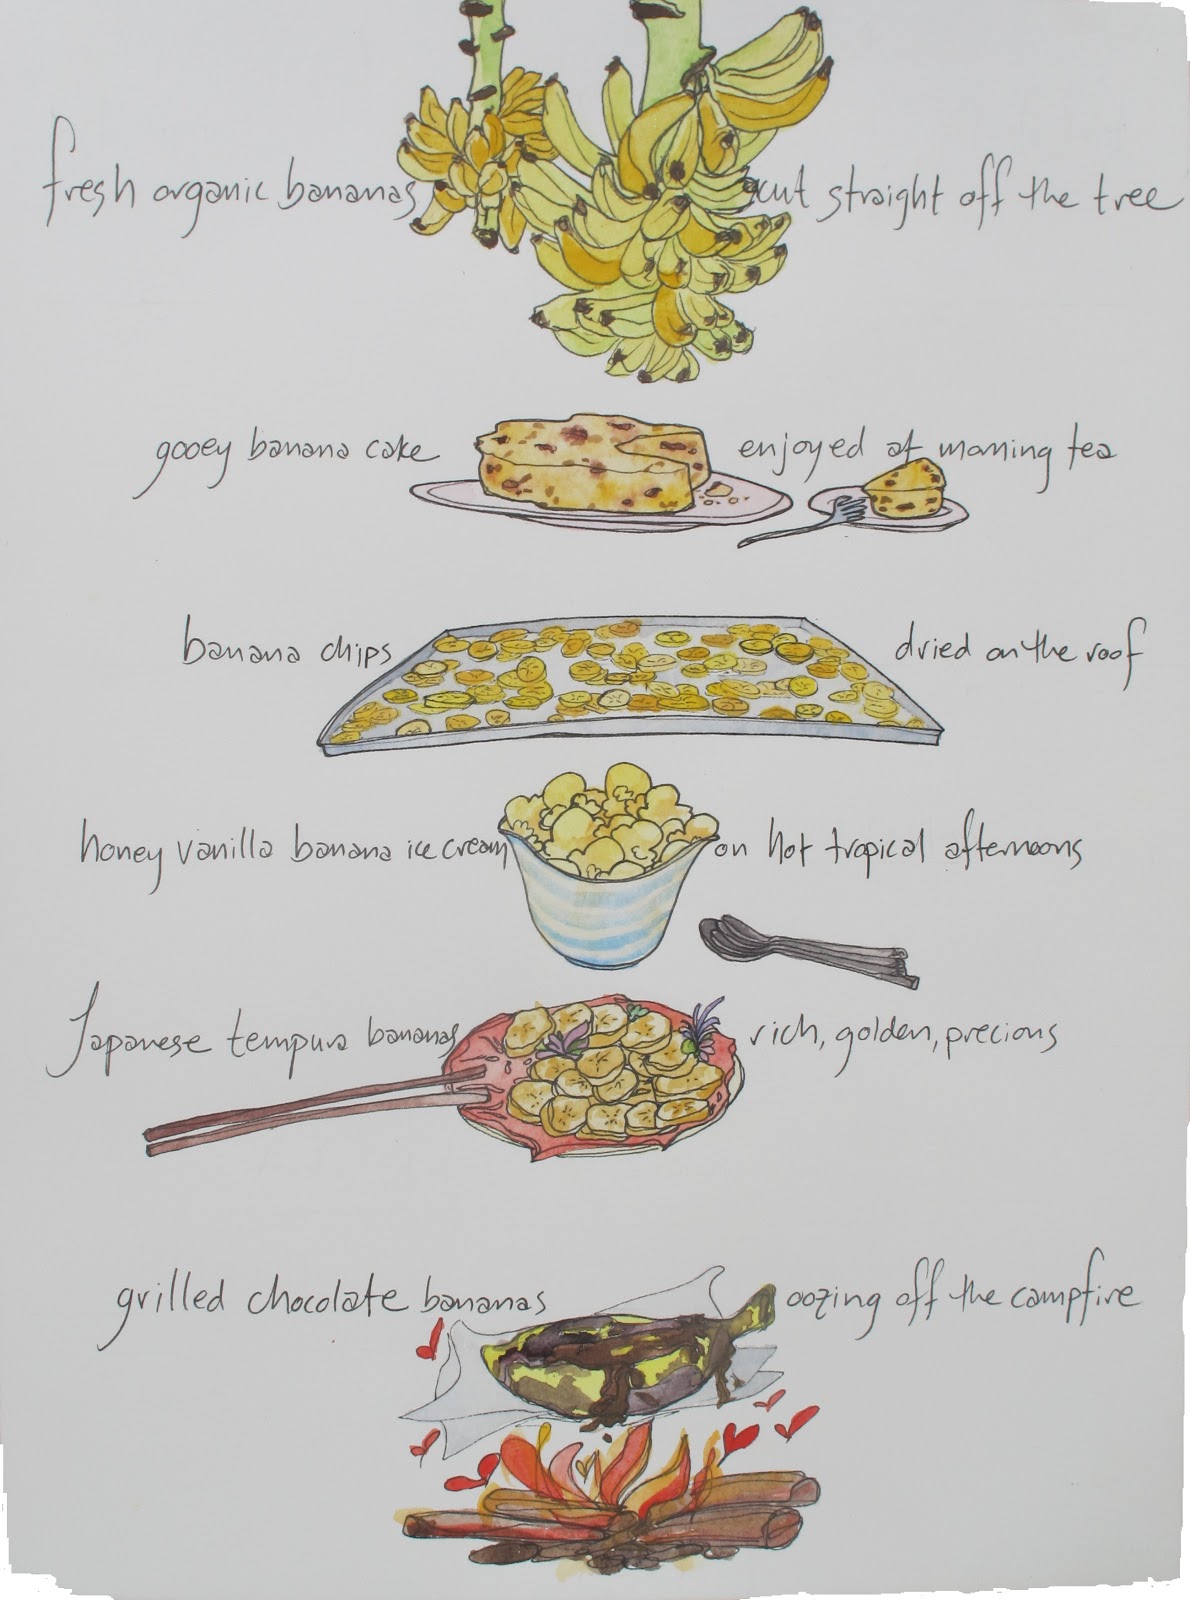 fresh organic bananas cut straight off the tree
gooey banana cake enjoyed at morning tea
banana chips dried on the roof
honey vanilla banana ice cream on hot tropical afternoons
Japanese tempura bananas rich, golden, precious
grilled chocolate bananas oozing off the campfire